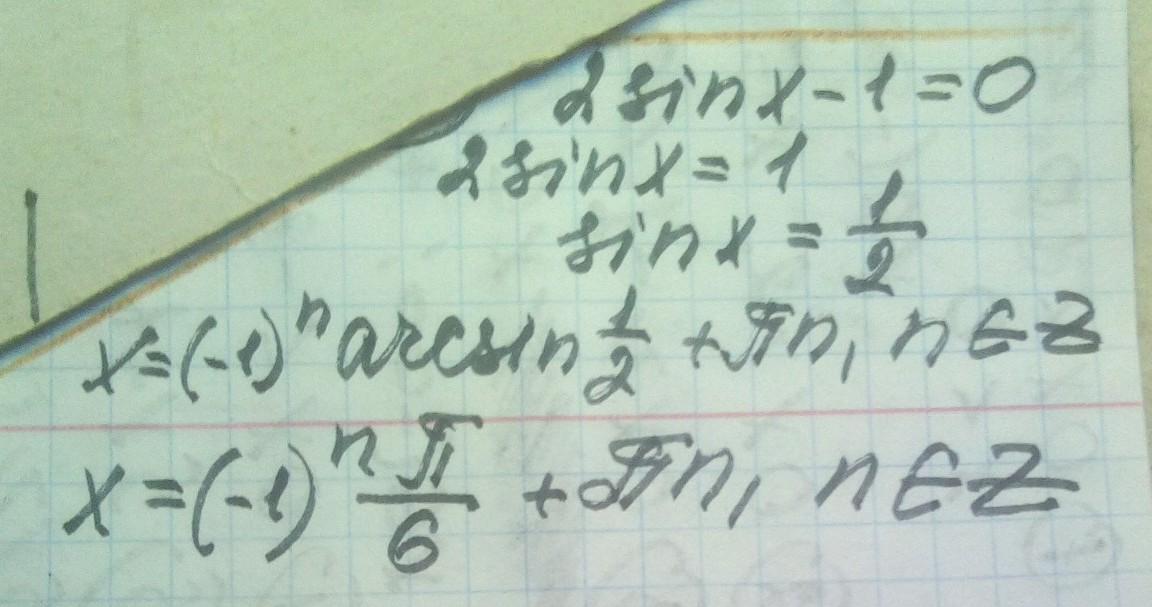 2 sin x - 1 = 0
2 sin x = 1
sin x = 1/2
x = (-1)ⁿ arcsin 1/2 + πn, n ∈ Z
x = (-1)ⁿ π/6 + πn, n ∈ Z